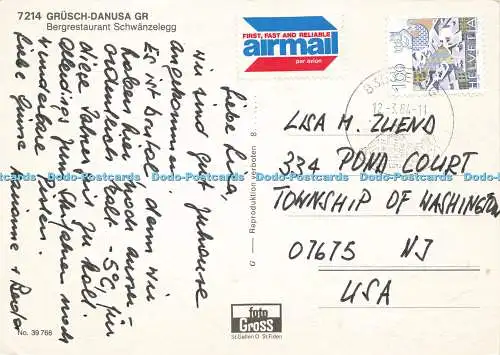 7214 GRÜSCH-DANUSA GR
Bergrestaurant Schwänzelegg
FIRST, FAST AND RELIABLE
airmail
par avion
HELVETIA
160
12-3.84-11
Liebe Lisa,
wir sind gut zuhause
angekommen
Es ist brutal, denn wir
haben hier noch ausser-
ordentlich kalt -5°C, für
diese Jahreszeit zu kalt.
Allerdings zum Skifahren noch
wunderbare Pisten.
Liebe Grüsse + Beda
LISA M. ZUEND
334 POND COURT
TOWNSHIP OF WASHINGTON
07675 NJ
USA
Reproduktion verboten
foto
Gross
St.Gallen O St.Fiden
No. 39 766
Dodo-Postcards Dodo-Postcards Dodo-Postcards Dodo-Postcards Dodo-Postcards